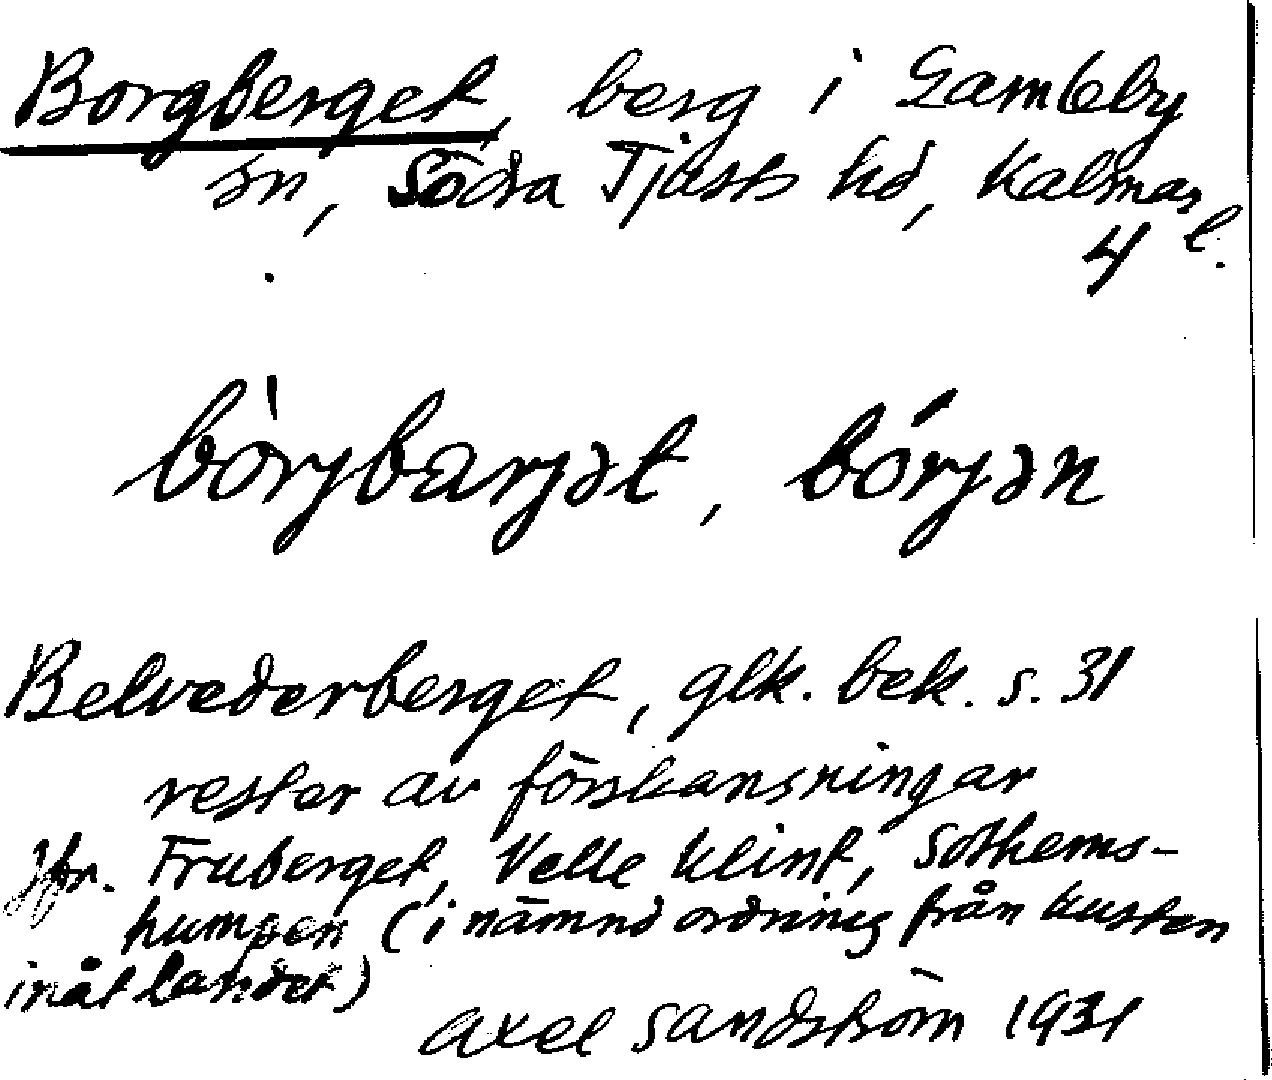 Borgberget, berg i Gamleby
sn, Södra Tjusts hd, Kalmar
l.
4
bòrjbarjət, bórjən
Belvederberget, glk. bek. s. 31
rester av förskansningar
Jfr. Fruberget, Velle klint, Sothems-
humpen (i nämnd ordning från kusten
inåt landet)
Axel Sandström 1931